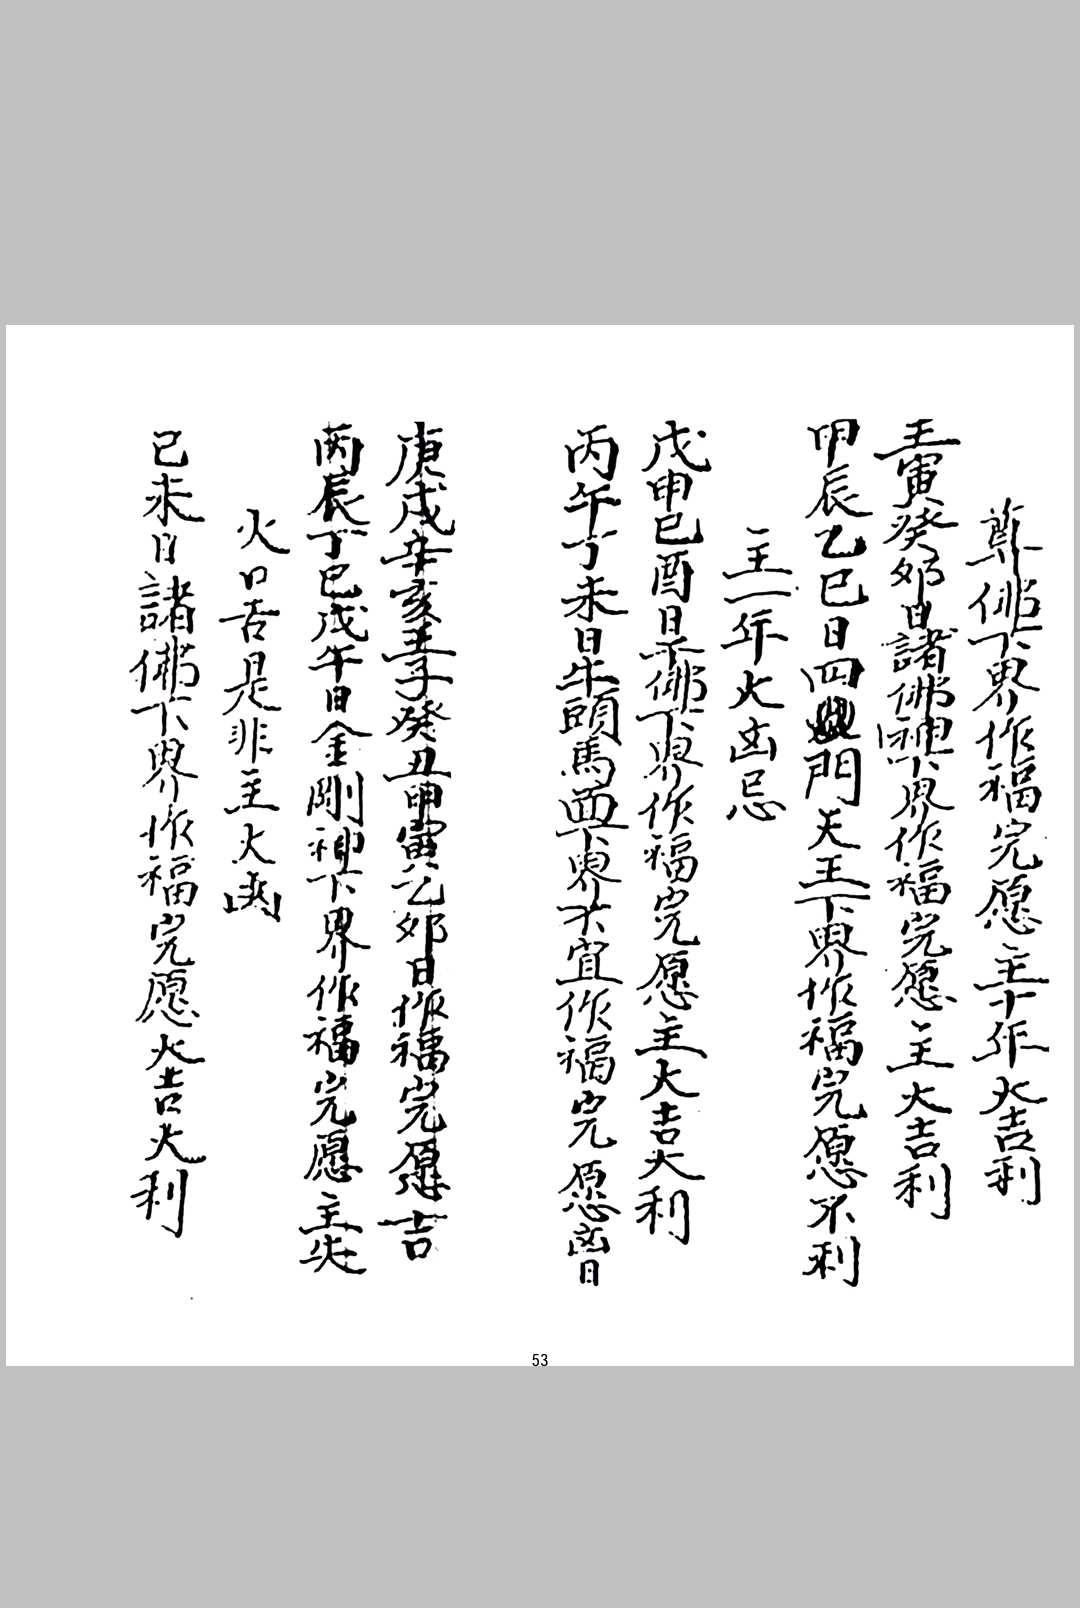 尊佛下界作福完愿主十年大吉利
壬寅癸卯日諸佛神下界作福完愿主大吉利
甲辰乙巳日四門天王下界作福完愿不利
主一年火凶忌
戊申已酉日千佛下界作福完愿主大吉大利
丙午丁未日牛頭馬面下界不宜作福完愿凶日
庚戌辛亥壬子癸丑甲寅乙卯日作福完愿吉
丙辰丁巳戊午日金剛神下界作福完愿主失
火口舌是非主大凶
已未日諸佛下界作福完愿大吉大利
53